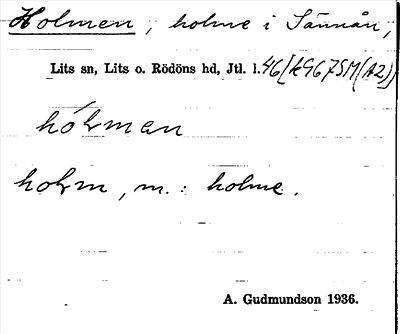 Holmen, holme i Sännån,
Lits sn, Lits o. Rödöns hd, Jtl. l. 46 [k967SM(A2)]
hólmen
holm, m.: holme.
A. Gudmundson 1936.